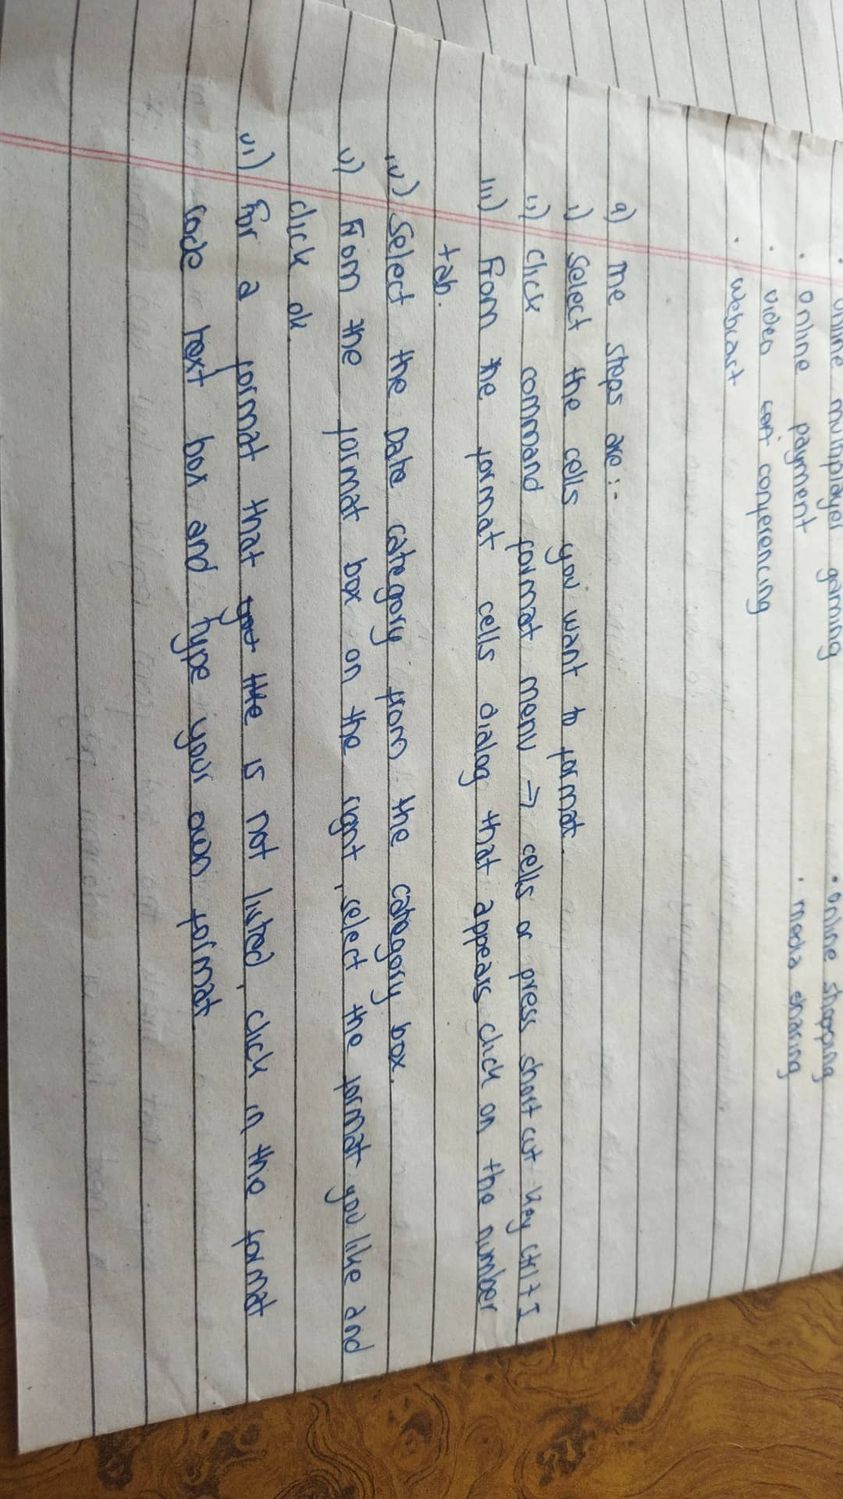 online multiplayer gaming
• online shopping
• online payment
• media sharing
• video conferencing
• webcast
9) The steps are :-
i) Select the cells you want to format.
ii) Click command format menu → cells or press short cut key Ctrl + I
iii) From the format cells dialog that appears click on the number
tab.
iv) Select the Date category from the category box.
v) From the format box on the right, select the format you like and
click ok.
vi) For a format that like is not listed, click in the format
code text box and type your own format